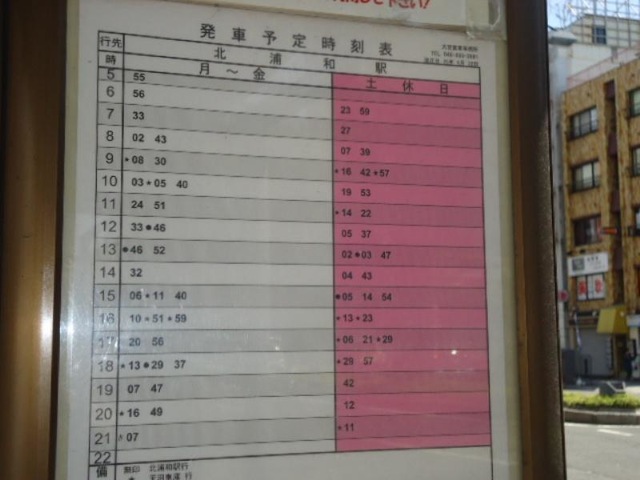 発車予定時刻表
行先 北浦和駅
時 月～金 土休日
5 55
6 56 23 59
7 33 27
8 02 43 07 39
9 ★08 30 ★16 42 ★57
10 03 ★05 40 19 53
11 24 51 ★14 22
12 33 ●46 05 37
13 ●46 52 02 ●03 47
14 32 04 43
15 06 ★11 40 ●05 14 54
16 10 ★51 ★59 ★13 ★23
17 20 56 ★06 21 ★29
18 ★13 ●29 37 ★29 57
19 07 47 42
20 ★16 49 12
21 07 ★11
22
備 無印 北浦和駅行